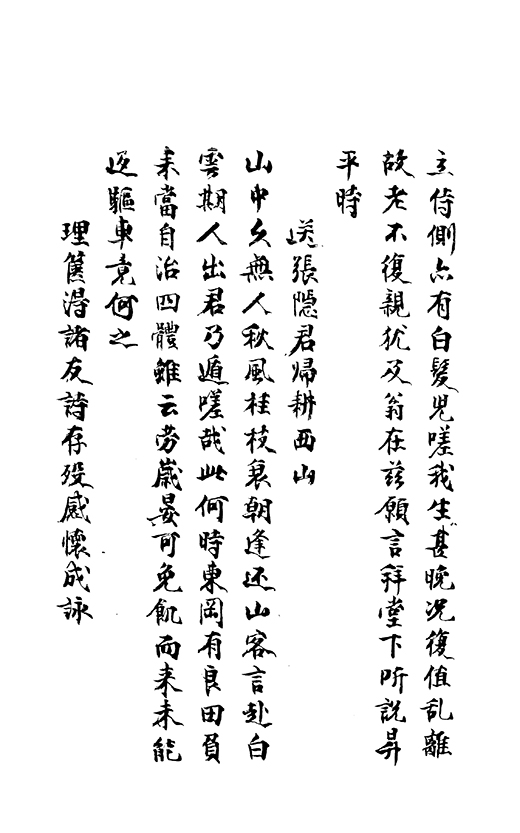 立侍側亦有白髮兒嗟我生甚晚况復值乱離
故老不復親犹及翁在兹願言拜堂下听說昇
平時
送張隱君歸耕西山
山中久無人秋風桂枝衰朝逢还山客言赴白
雲期人出君乃遁嗟哉此何時東岡有良田負
耒當自治四體雖云劳歲晏可免飢而来未能
返驅車竟何之
理篋淂諸友詩存殁感懷成詠